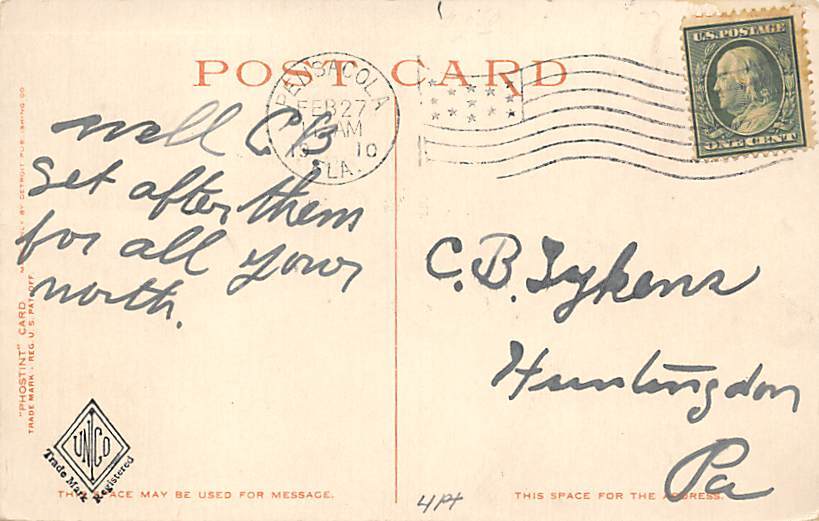 POST CARD
PENSACOLA
FEB 27
AM
19 10
FLA.
U.S. POSTAGE
ONE CENT
well C B
Set after them
for all your
north.
C. B. Tykens
Huntingdon
Pa
"PHOSTINT" CARD
TRADE MARK - REG. U.S. PAT. OFF.
BY DETROIT PUBLISHING CO
UNICO
Trade Mark Registered
THIS SPACE MAY BE USED FOR MESSAGE.
4PA
THIS SPACE FOR THE ADDRESS.